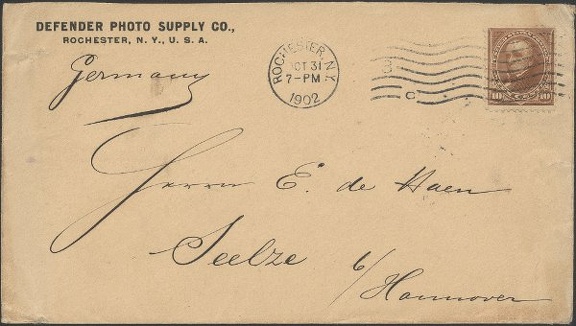 DEFENDER PHOTO SUPPLY CO.,
ROCHESTER, N. Y., U. S. A.
Germany
ROCHESTER, N.Y.
OCT 31
7-PM
1902
C
10 10
Herrn E. de Haen
Seelze
b/Hannover